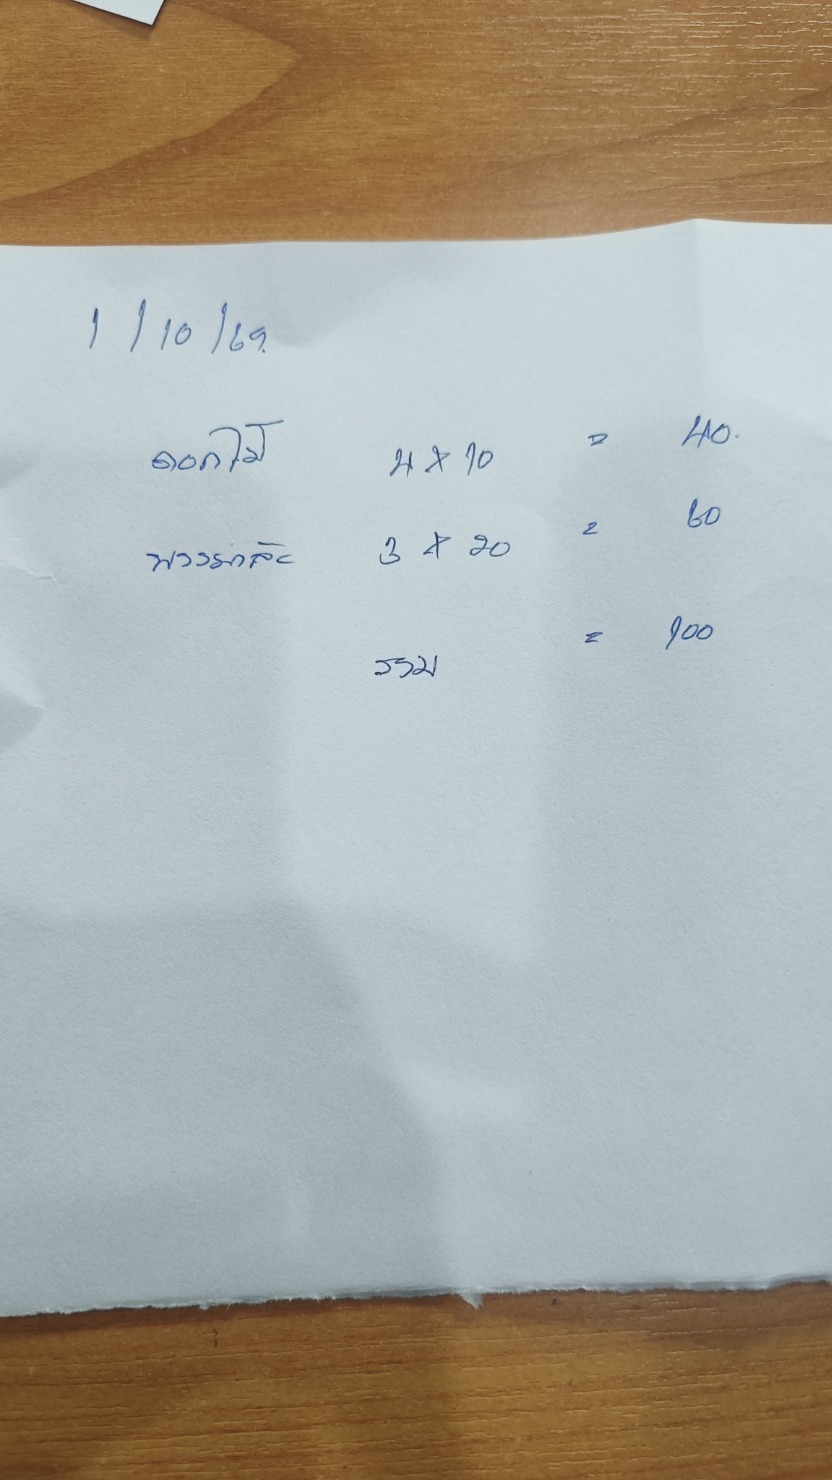 1/10/69.
ดอกไม้ 4 x 10 = 40.
3 x 20 = 60
รวม = 100